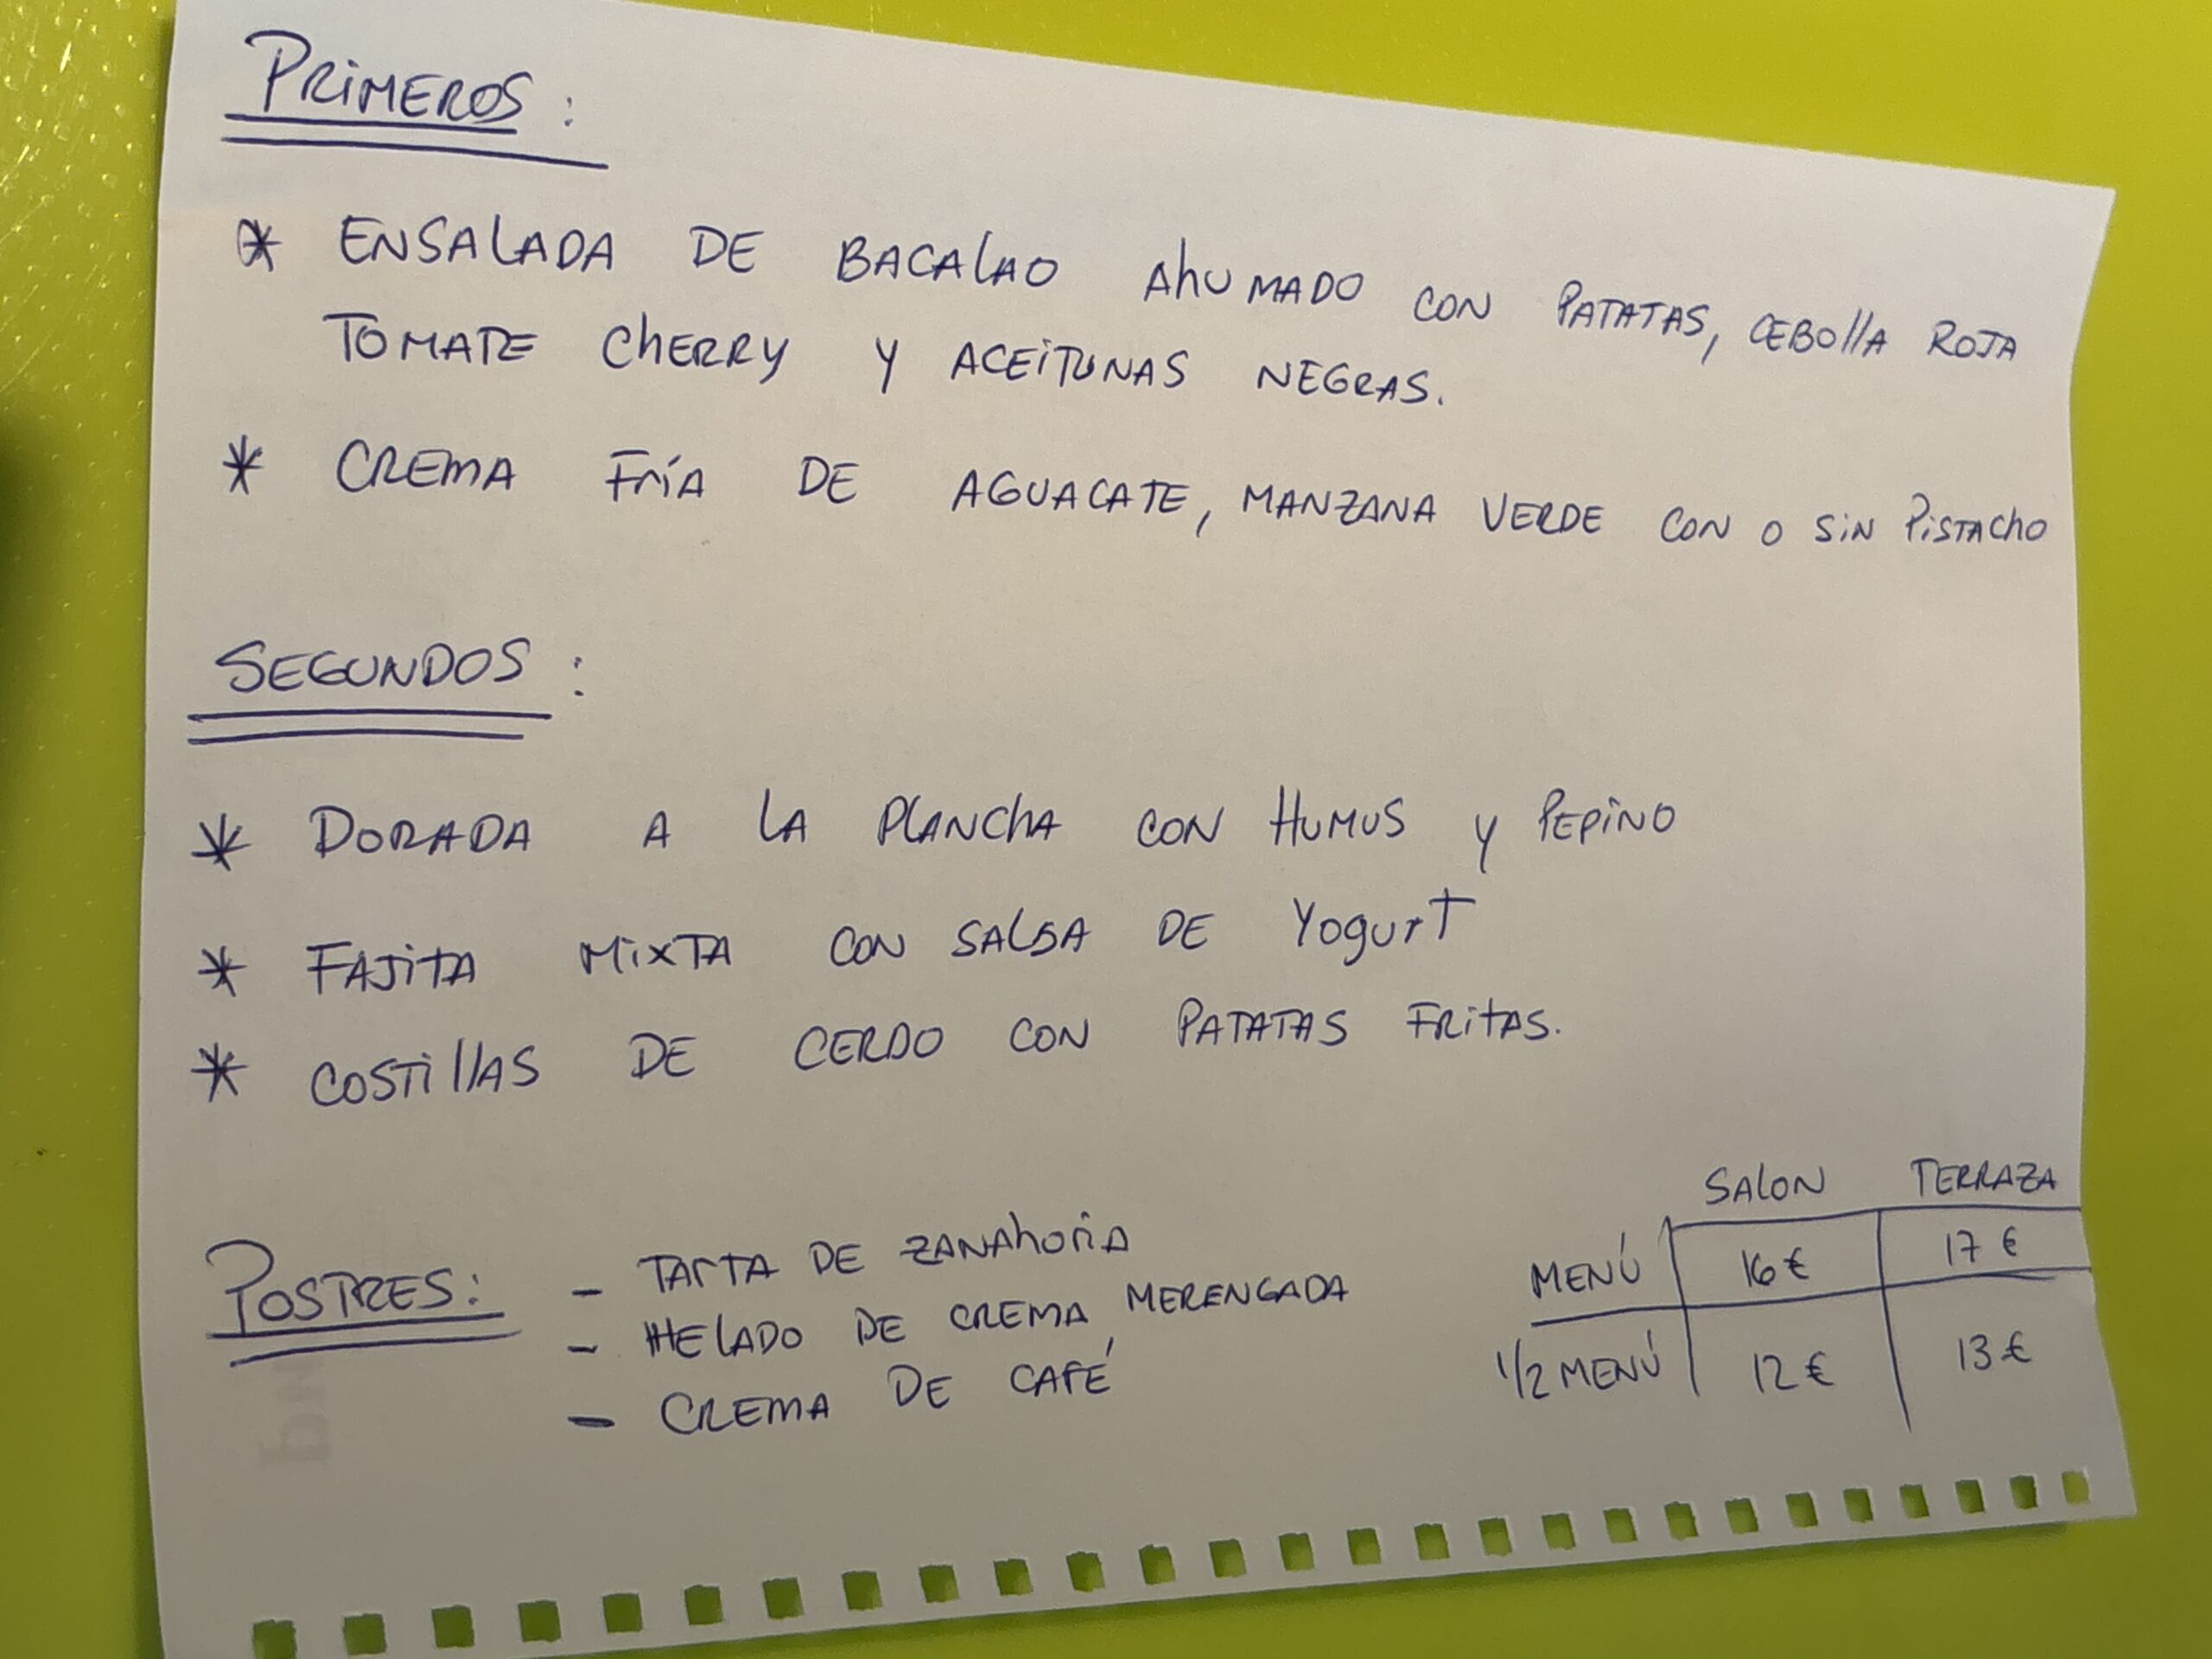 PRIMEROS:
* ENSALADA DE BACALAO AHUMADO CON PATATAS, CEBOLLA ROJA
TOMATE CHERRY Y ACEITUNAS NEGRAS.
* CREMA FRÍA DE AGUACATE, MANZANA VERDE CON O SIN PISTACHO
SEGUNDOS:
* DORADA A LA PLANCHA CON HUMUS Y PEPINO
* FAJITA MIXTA CON SALSA DE YOGURT
* COSTILLAS DE CERDO CON PATATAS FRITAS.
POSTRES: - TARTA DE ZANAHORIA
- HELADO DE CREMA MERENGADA
- CREMA DE CAFÉ
SALON TERRAZA
MENÚ 16 € 17 €
1/2 MENÚ 12 € 13 €